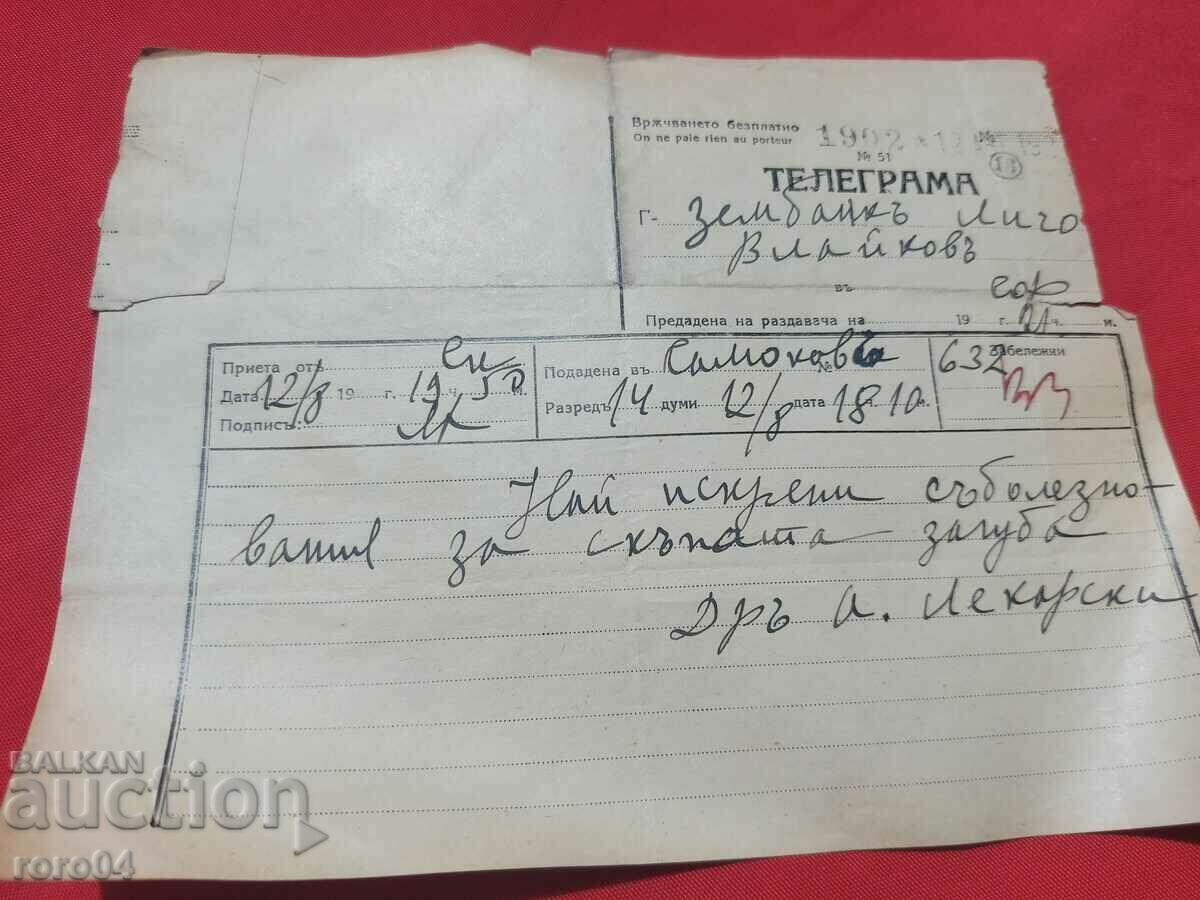 Врѫчването безплатно
On ne paie rien au porteur
1902
№
№ 51
13
ТЕЛЕГРАМА
Г- Зембанкъ Лиго
Влайковъ
въ Соф
Предадена на раздавача на 19 г. 21 ч. м.
Приета отъ Ск
Дата 12/8 19 г. 19 ч. 50 м.
Подпись
Подадена въ Самоковъ №
Разредъ 14 думи 12/8 дата 18 ч. 10 м.
632 Забележки
Най искрени съболезно-
вания за скъпата загуба
Дръ А. Лекарски
BALKAN
auction
roro04